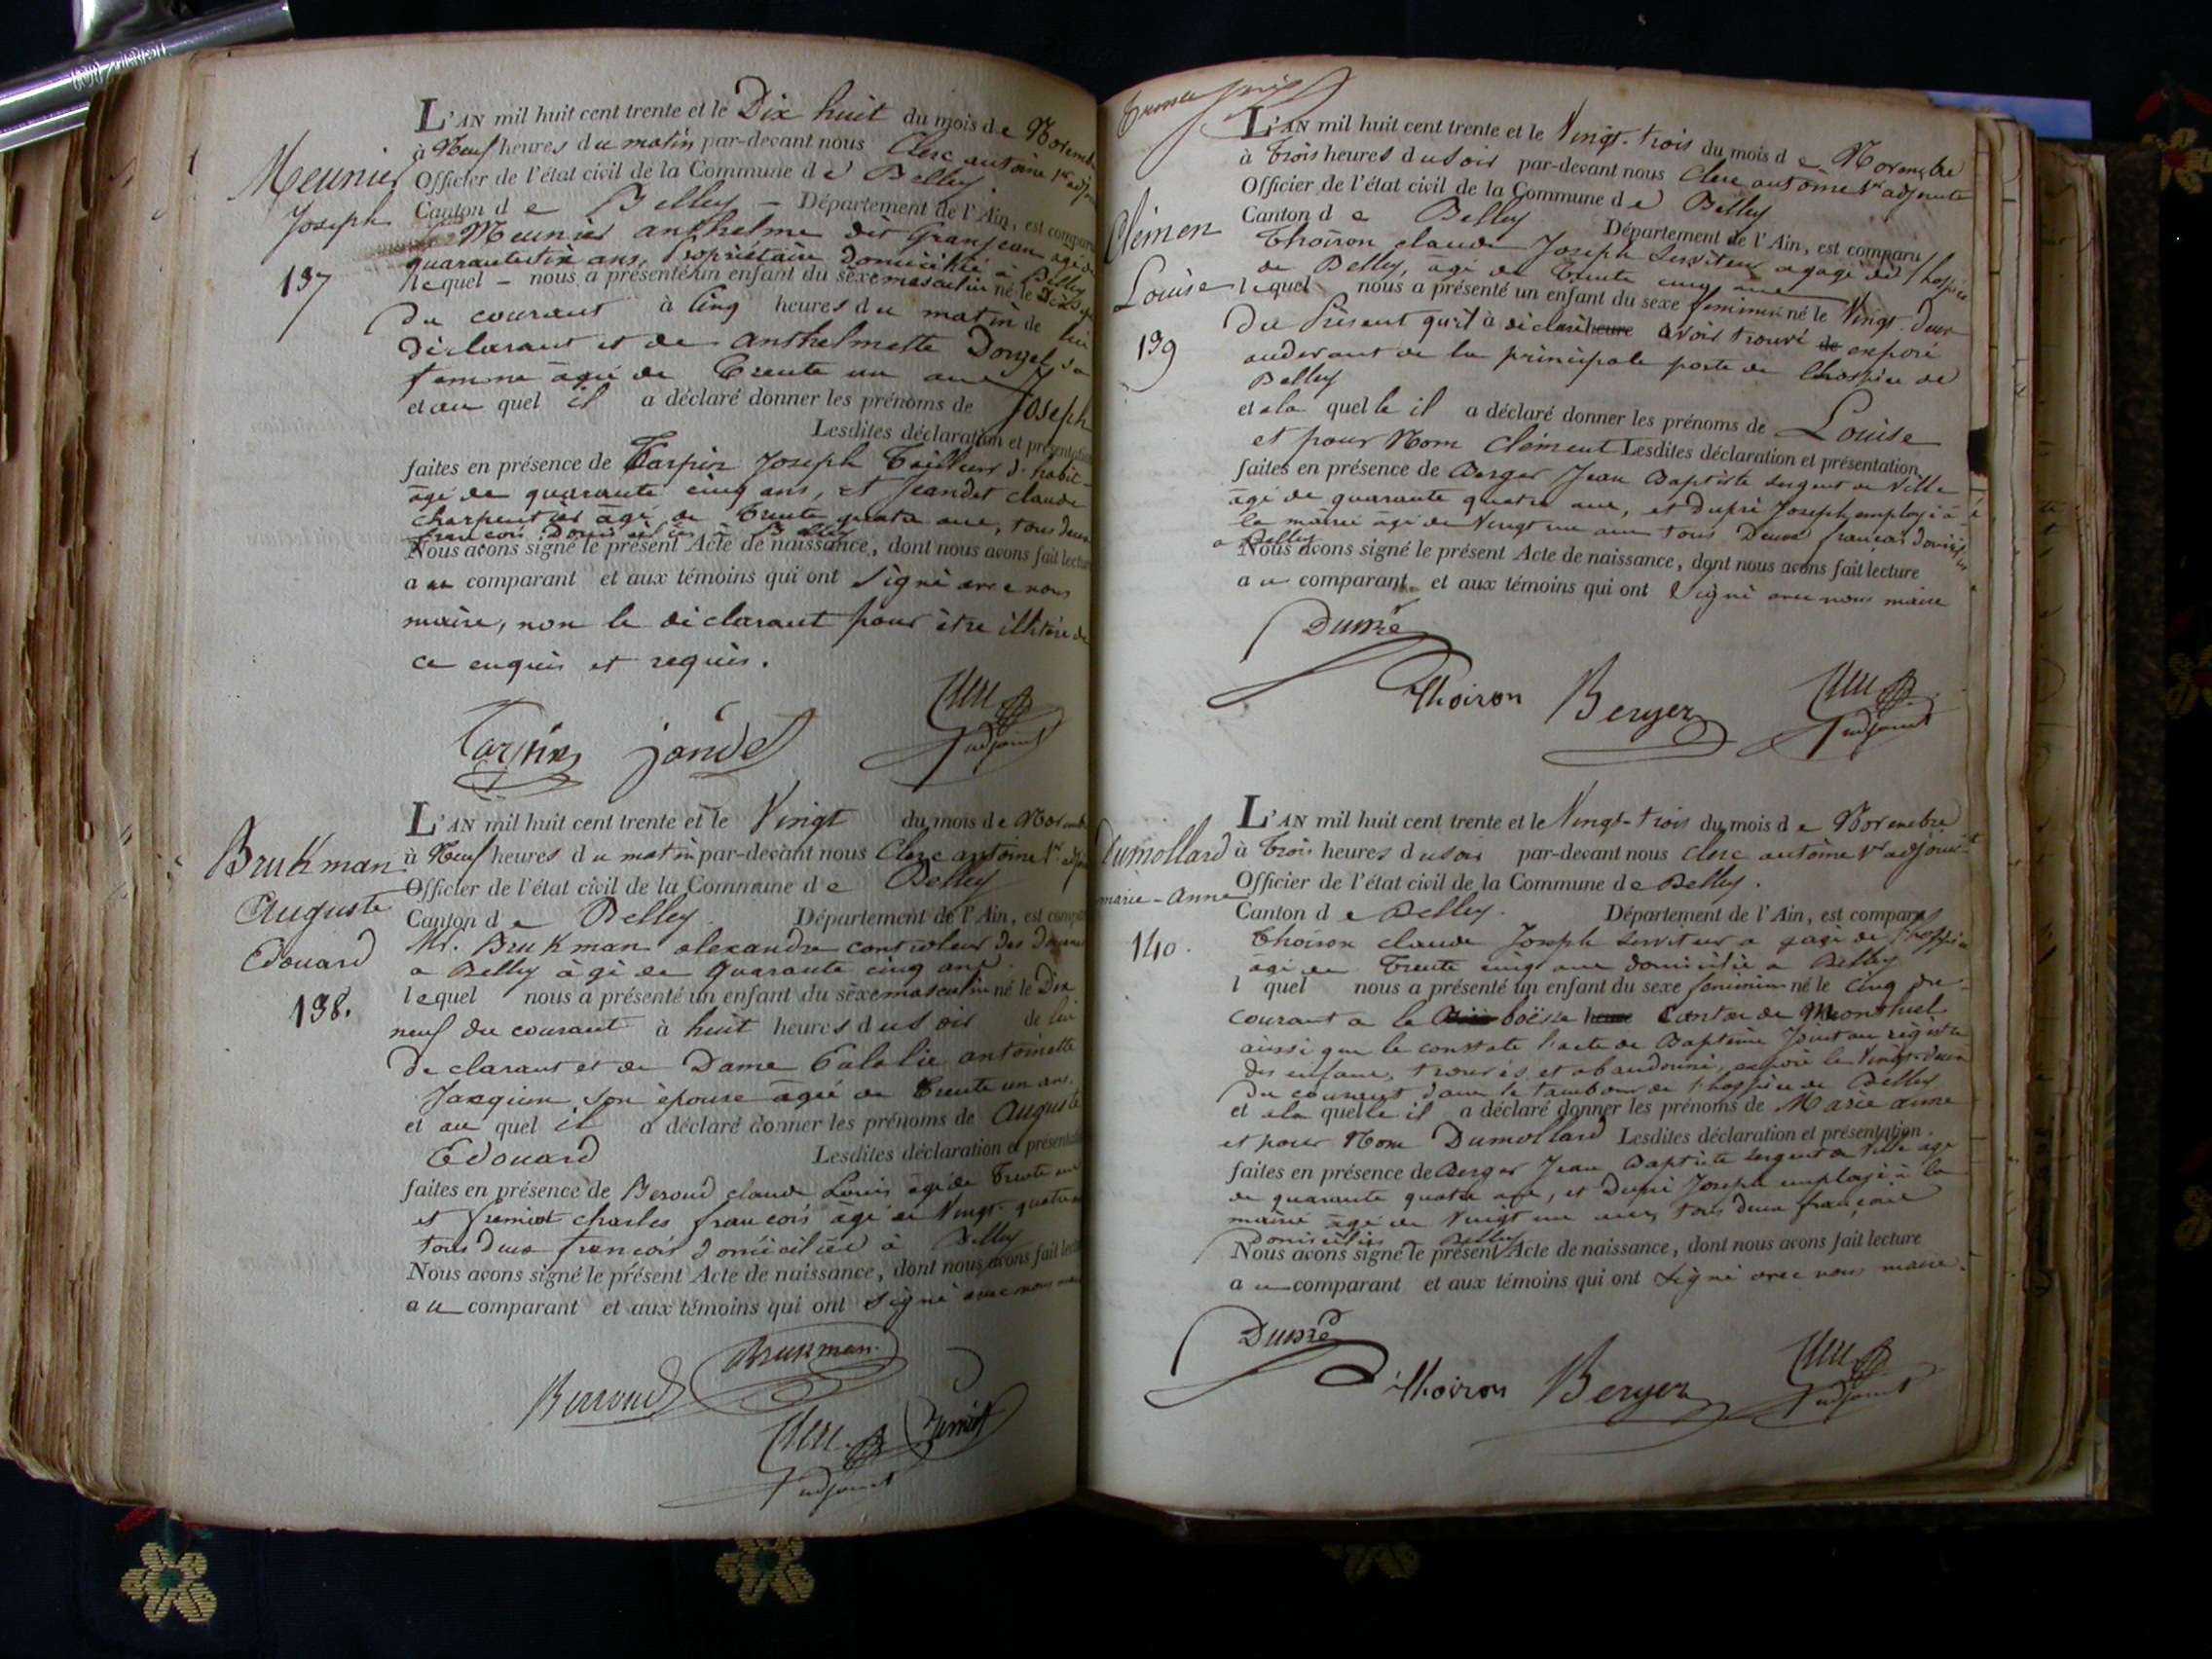 L'AN mil huit cent trente et le Dix huit du mois de Novemb
à Neuf heures du matin par-devant nous Clerc antoine 1er adj
Officier de l'état civil de la Commune de Belley
Canton de Belley – Département de l'Ain, est comparu
Meunier
Joseph
137
Meunier anthelme dit Granjean agé de
quarante six ans, Propriétaire domicilié à Belley
lequel – nous a présenté un enfant du sexe masculin né le Dix sept
du courant à Cinq heures du matin de lui
déclarant et de anthelmette Dorgel sa
femme âgée de Trente un ans
et au quel il a déclaré donner les prénoms de Joseph
Lesdites déclaration et présentation
faites en présence de Tarpin Joseph Tailleur d'habit
âgé de quarante cinq ans, et Jeandet claude
charpentier âgé de Trente quatre ans, tous deux
françois Domiciliés à Belley
Nous avons signé le présent Acte de naissance, dont nous avons fait lecture
au comparant et aux témoins qui ont Signé avec nous
maire, non le déclarant pour être illitéré de
ce enquis et requis.
Tarpin jandet Clerc
adjoint
L'AN mil huit cent trente et le Vingt du mois de Novemb
à Neuf heures du matin par-devant nous Clerc antoine 1er adj
Officier de l'état civil de la Commune de Belley
Canton de Belley. Département de l'Ain, est compar
Brukman
Auguste
Edouard
138.
Mr. Brukman alexandre controleur des
a Belley âgé de Quarante cinq ans
lequel nous a présenté un enfant du sexe masculin né le Dix
neuf du courant à huit heures du soir de lui
declarant et de Dame Eulalie antoinette
son épouse âgée de Trente un ans.
et au quel il a déclaré donner les prénoms de Auguste
Edouard Lesdites déclaration et présentation
faites en présence de Beroud claude Louis âgé de Trente
et fremiot charles françois âgé de Vingt quatre
tous deux françois domiciliés à Belley
Nous avons signé le présent Acte de naissance, dont nous avons fait lecture
au comparant et aux témoins qui ont Signé avec nous
Brukman
Berroud
Clerc
adjoint
L'AN mil huit cent trente et le Vingt-trois du mois de Novembre
à Trois heures du soir par-devant nous Clerc antoine 1er adjoint
Officier de l'état civil de la Commune de Belley
Canton de Belley Département de l'Ain, est comparu
Clémen
Louise
139
Thoiron claude Joseph Serviteur a gage de l'hospice
de Belley, âgé de Trente cinq ans
lequel nous a présenté un enfant du sexe feminin né le Vingt deux
du Présent qu'il à déclaré heure avoir trouvé de exposé
audevant de la principale porte de l'hospice de
Belley
et a la quelle il a déclaré donner les prénoms de Louise
et pour Nom Clément Lesdites déclaration et présentation
faites en présence de Berger Jean Baptiste Sergent de Ville
âgé de quarante quatre ans, et Dupré Joseph employé à
la mairie âgé de Vingt un ans tous Deux français domiciliés
a Belley
Nous avons signé le présent Acte de naissance, dont nous avons fait lecture
au comparant et aux témoins qui ont Signé avec nous maire
Dupré
Thoiron Berger Clerc
adjoint
L'AN mil huit cent trente et le Vingt-trois du mois de Novembre
à Trois heures du soir par-devant nous Clerc antoine 1er adjoint
Officier de l'état civil de la Commune de Belley.
Canton de Belley. Département de l'Ain, est comparu
Dumollard
marie-anne
140.
Thoiron claude Joseph Serviteur a gage de l'hospice
âgé de Trente cinq ans domicilié a Belley
l quel nous a présenté un enfant du sexe feminin né le Cinq du
courant a la boësse heure Canton de Montluel
ainsi que le constate l'acte de Baptême Joint au régistre
des enfans trouvés et abandonné, exposé le Vingt-deux
du courant dans le tambour de l'hospice de Belley
et a la quelle il a déclaré donner les prénoms de Marie anne
et pour Nom Dumollard Lesdites déclaration et présentation
faites en présence de Berger Jean Baptiste Sergent de Ville age
de quarante quatre ans, et Dupré Joseph employé à la
mairie âgé de Vingt un ans, tous deux français
domiciliés a Belley
Nous avons signé le présent Acte de naissance, dont nous avons fait lecture
au comparant et aux témoins qui ont Signé avec nous maire.
Dupré
Thoiron Berger Clerc
adjoint